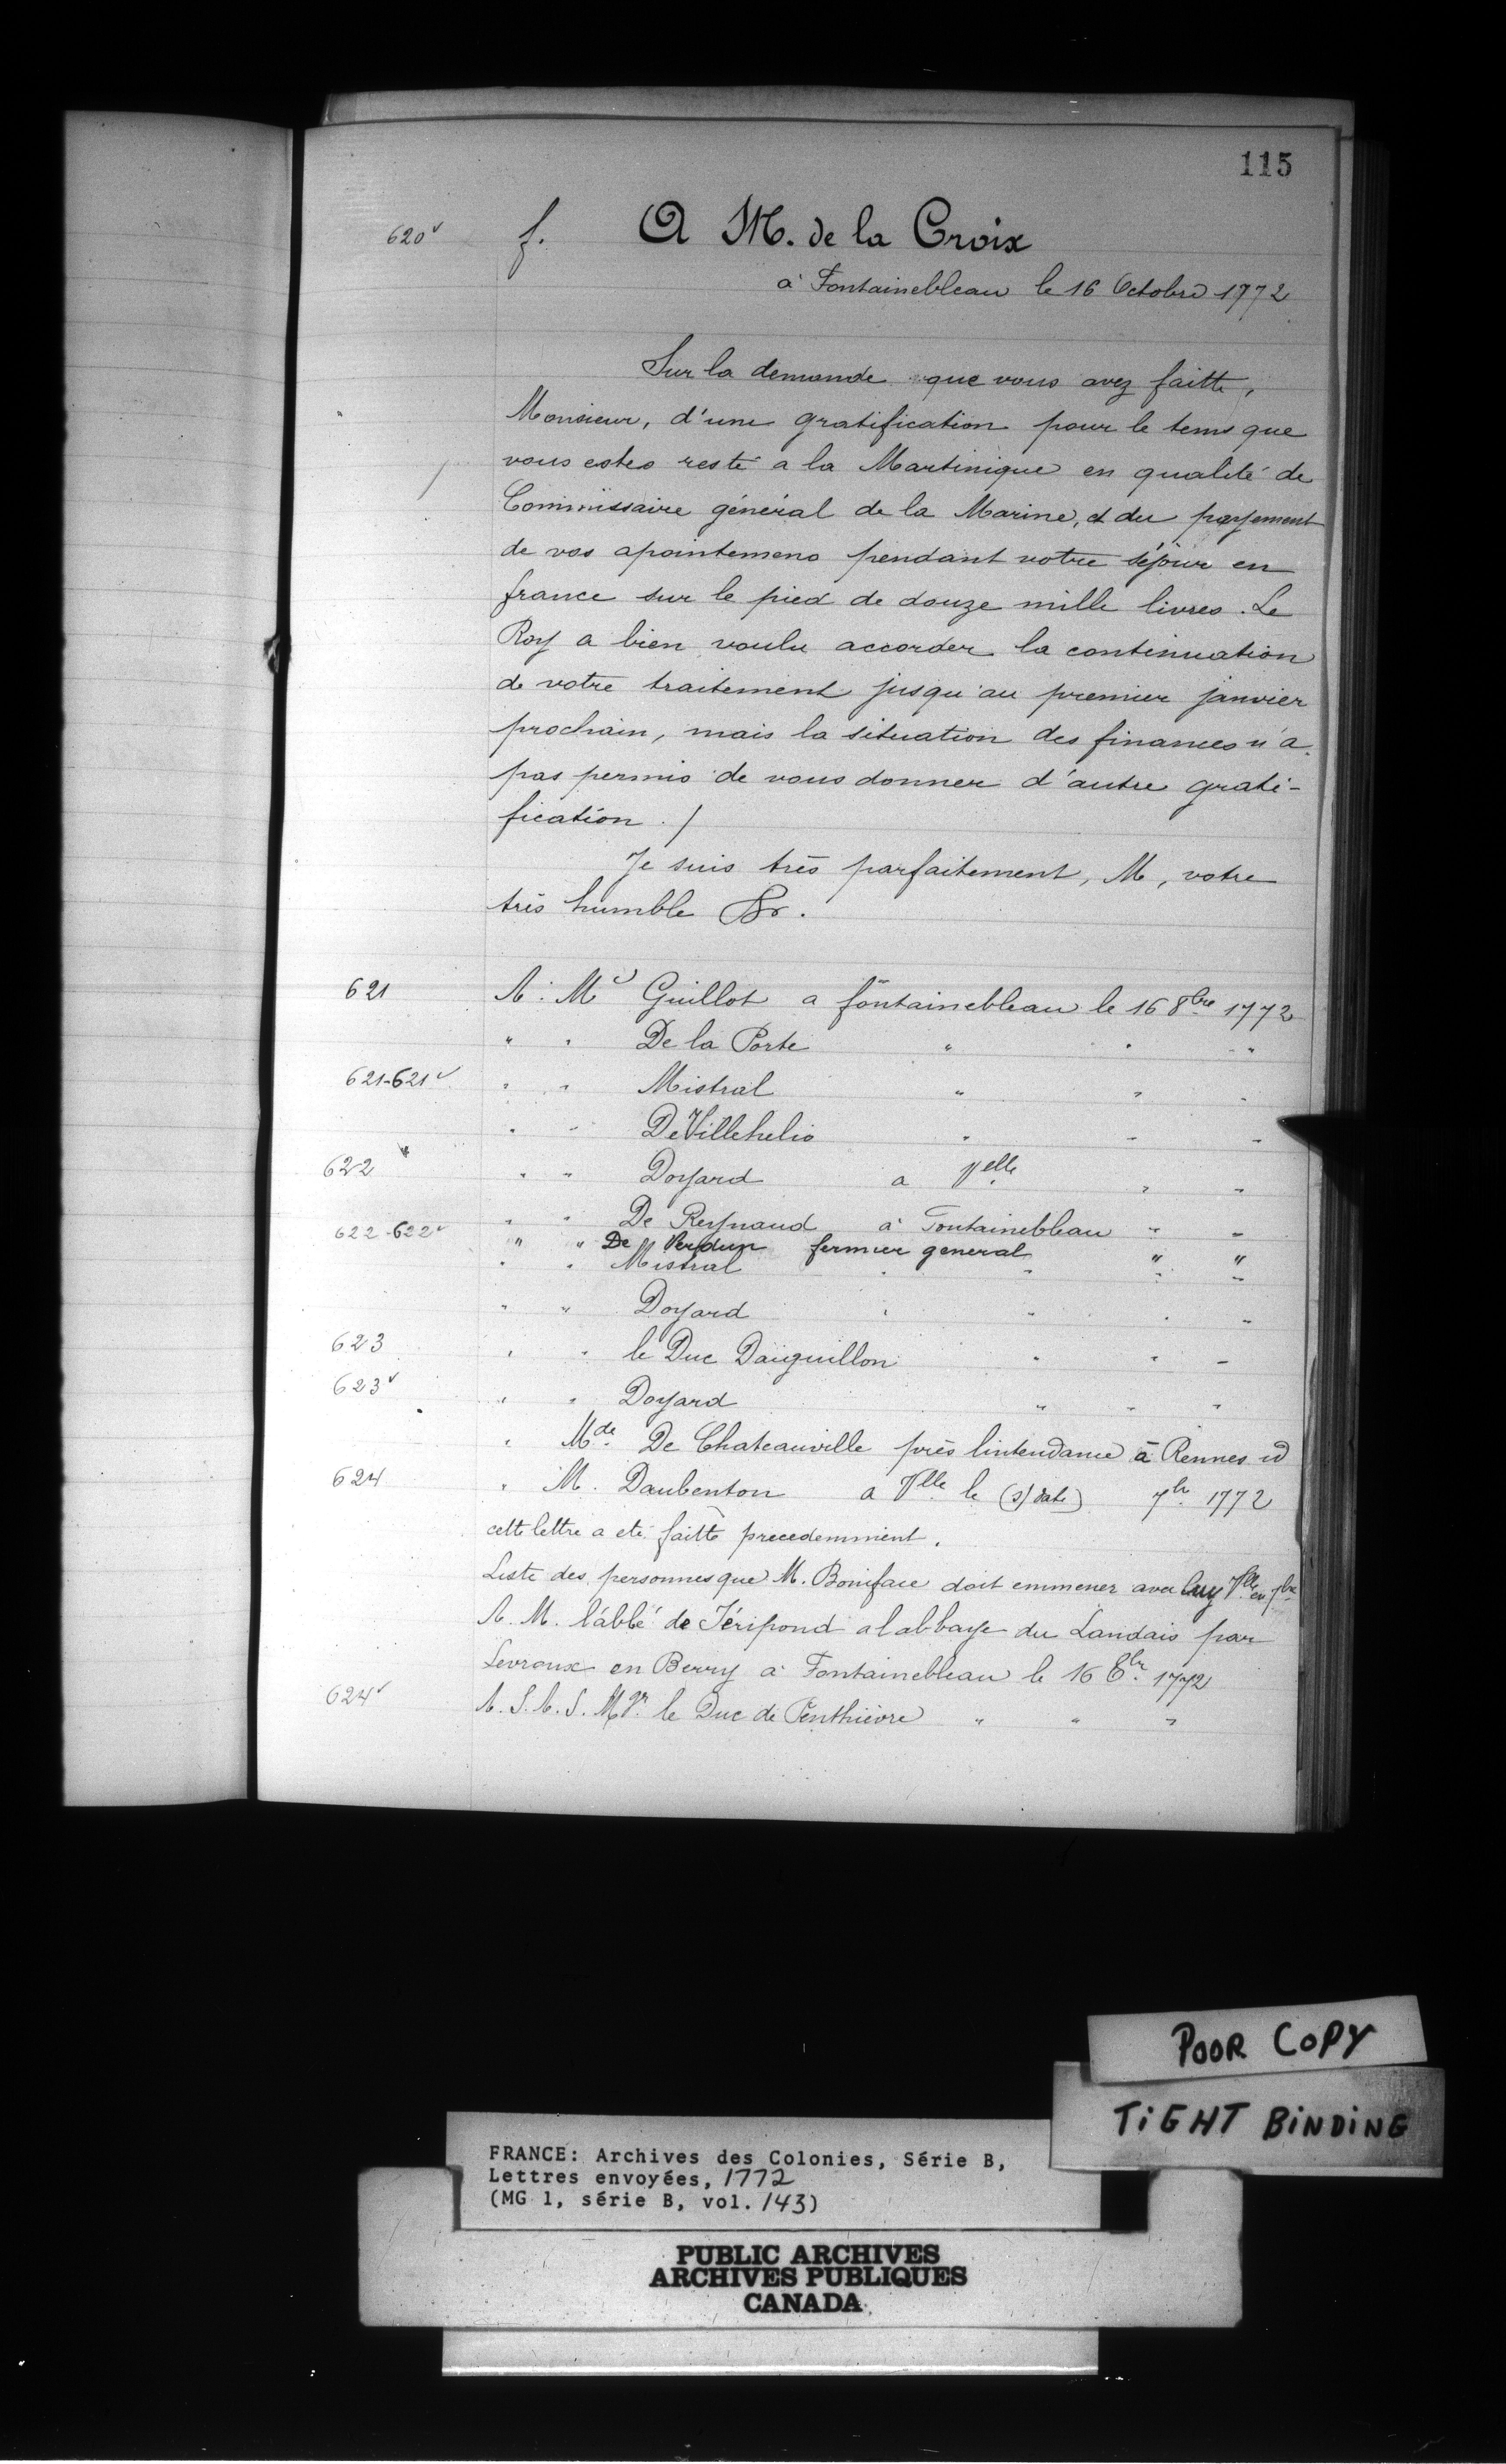 115
620v f. A M. de la Croix
à Fontainebleau le 16 Octobre 1772
Sur la demande que vous avez faitte,
Monsieur, d'une gratification pour le tems que
vous estes resté a la Martinique en qualité de
Commissaire général de la Marine, et du payement
de vos apointemens pendant votre séjour en
france sur le pied de douze mille livres. Le
Roy a bien voulu accorder la continuation
de votre traitement jusqu'au premier janvier
prochain, mais la situation des finances n'a
pas permis de vous donner d'autre grati-
fication ./
Je suis très parfaitement, M, votre
très humble &r.
621 A. Mr Guillot a fontainebleau le 16 8bre 1772
" " De la Porte " " "
621-621v " " Mistral " " "
" " De Villehelio " " "
622 " " Doyard a Velle " "
" " De Reynaud à Fontainebleau " "
622-622v " " De Verdun fermier general " "
" " Mistral " " " "
" " Doyard " " " "
623 " " le Duc Daiguillon " " "
623v " " Doyard " " "
" Mde De Chateauville près lintendance à Rennes id
624 " M. Daubenton a Vlle le (s/date) 7br 1772
cette lettre a eté faitte precedemment.
Liste des personnes que M. Boniface doit emmener avec luy Vlle en 7bre
A. M. l'abbé de Féripond a l'abbaye du Landais par
Levroux en Berry à Fontainebleau le 16 8br 1772
624v A. S. A. S. Mgr le Duc de Penthièvre " " "
POOR COPY
TIGHT BINDING
FRANCE: Archives des Colonies, Série B,
Lettres envoyées, 1772
(MG 1, série B, vol. 143)
PUBLIC ARCHIVES
ARCHIVES PUBLIQUES
CANADA